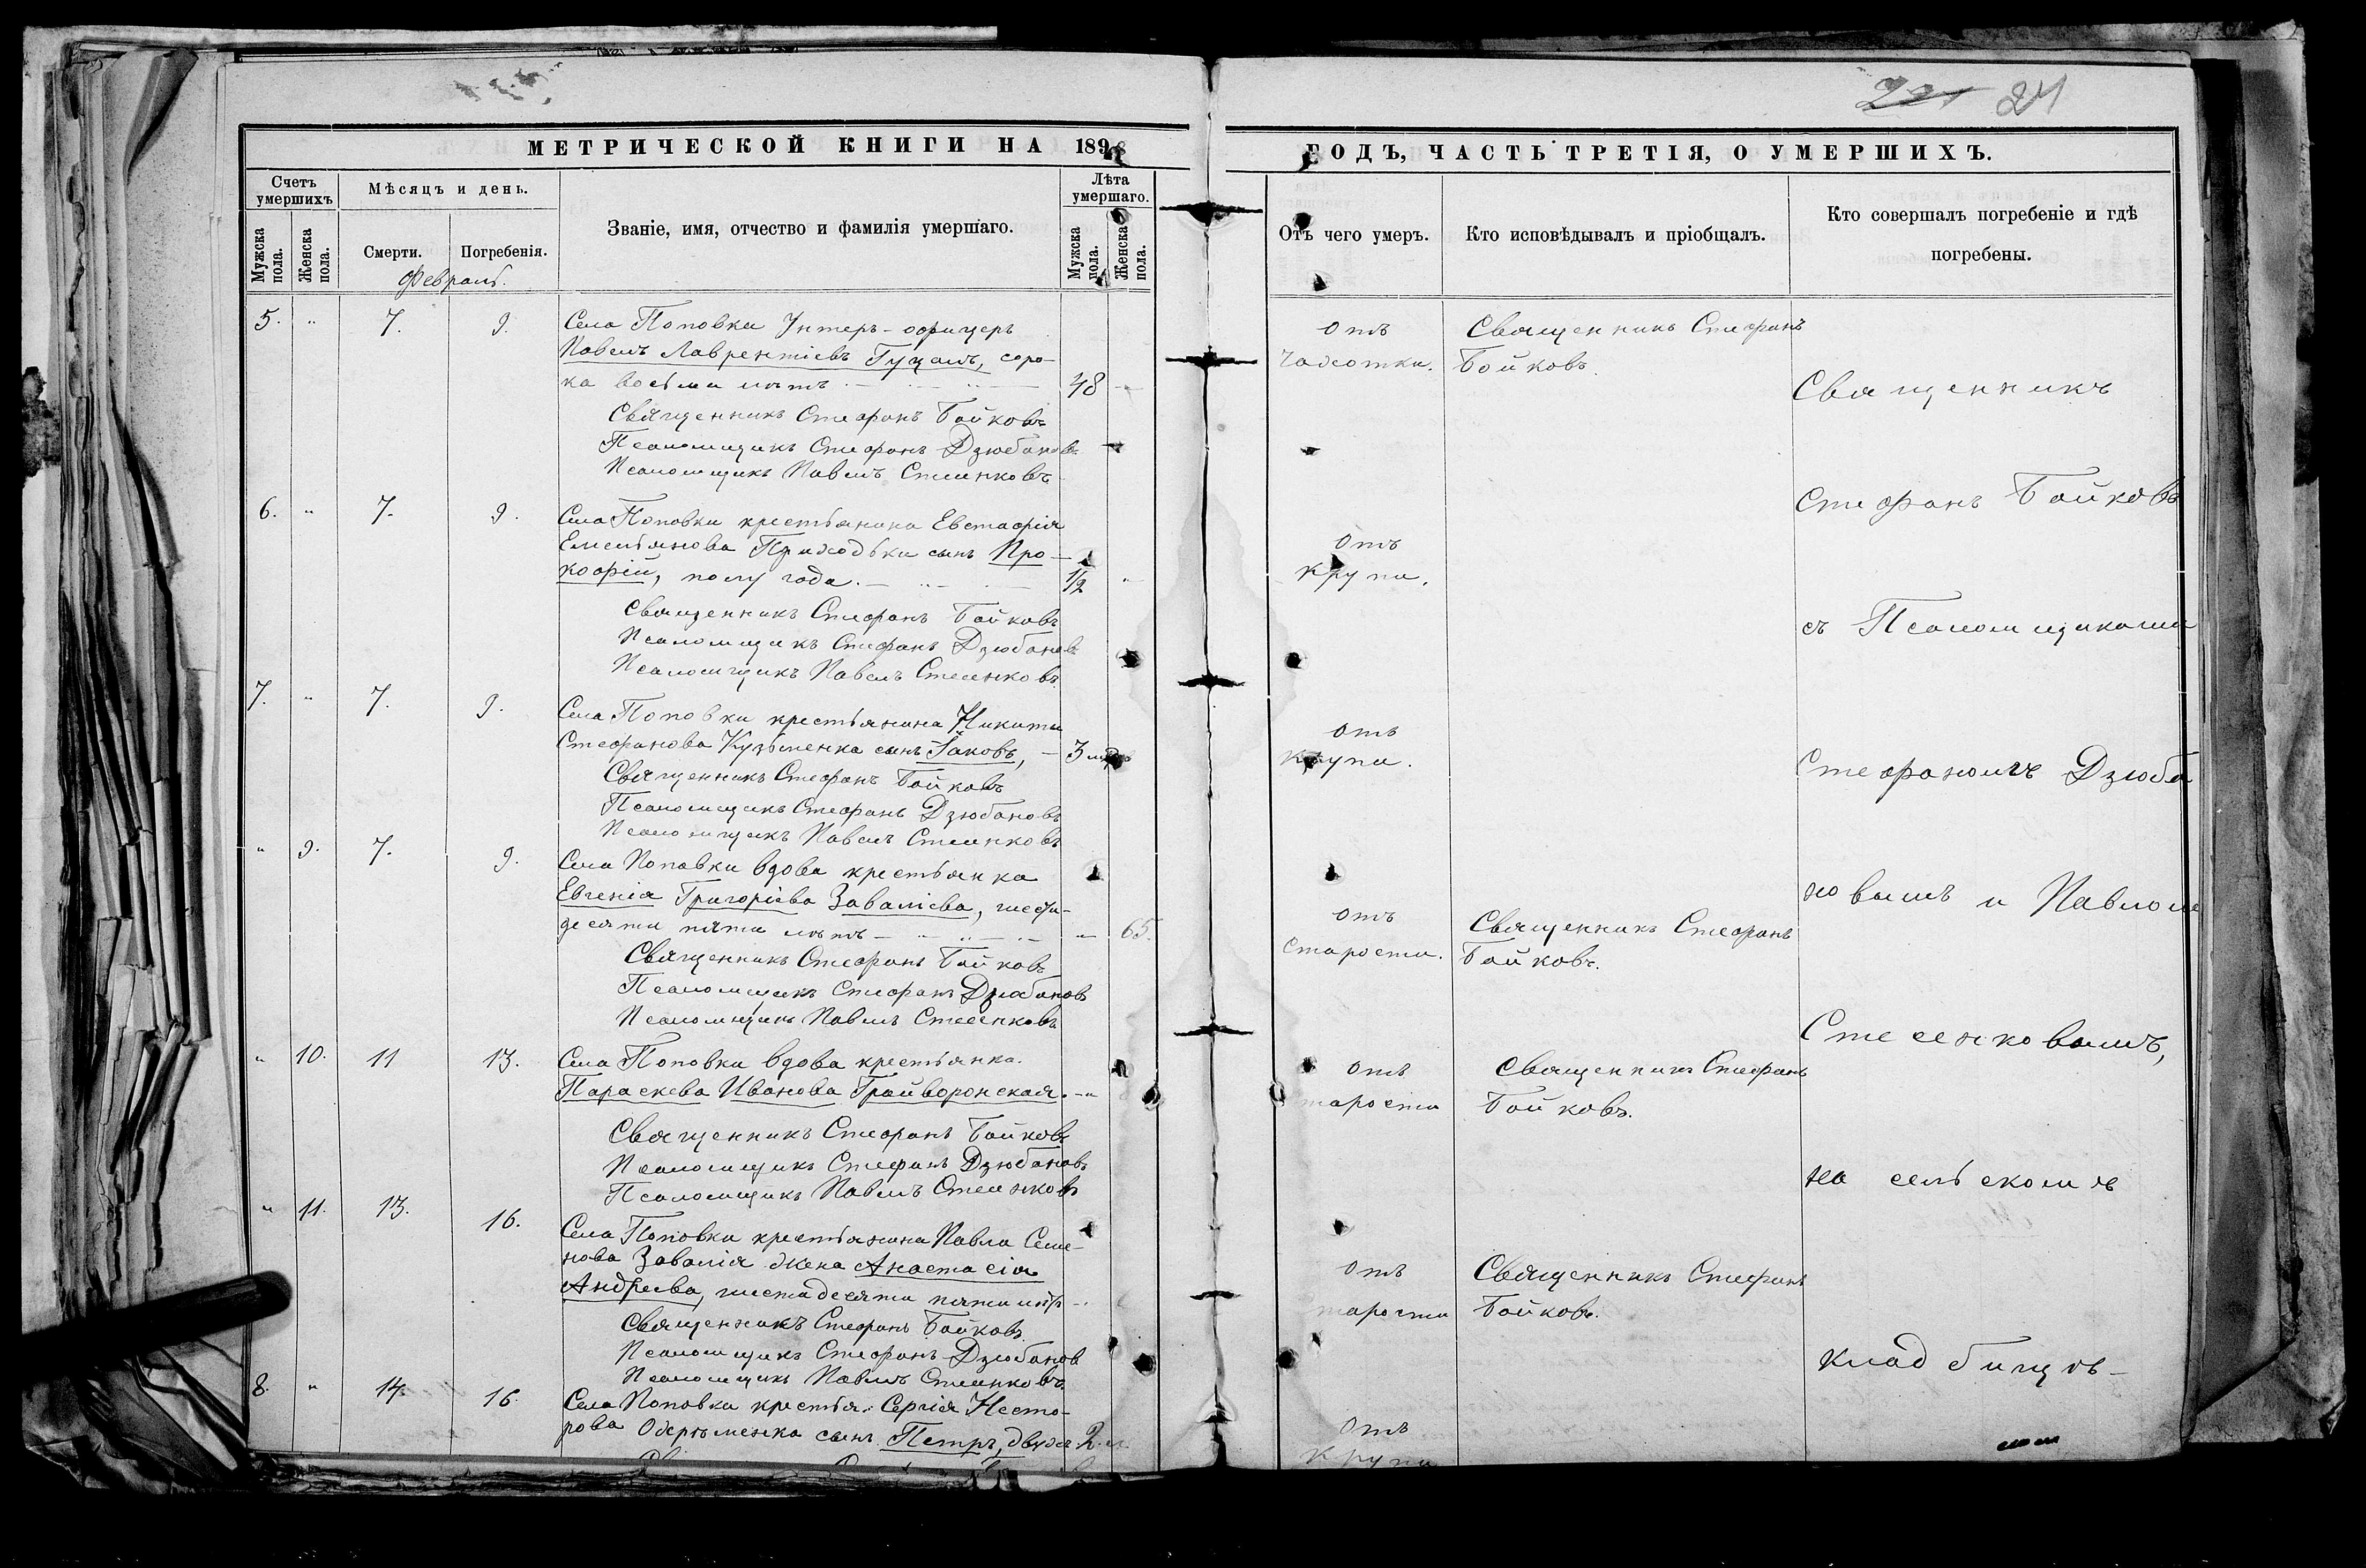 221 21
МЕТРИЧЕСКОЙ КНИГИ НА 1898
ГОДЪ, ЧАСТЬ ТРЕТІЯ, О УМЕРШИХЪ.
Счетъ умершихъ
Мѣсяцъ и день.
Званіе, имя, отчество и фамилія умершаго.
Лѣта умершаго.
Мужска пола.
Женска пола.
Смерти.
Погребенія.
Мужска пола.
Женска пола.
Отъ чего умеръ.
Кто исповѣдывалъ и пріобщалъ.
Кто совершалъ погребеніе и гдѣ
погребены.
Февраль.
5. " 7. 9. Села Поповки Унтеръ-офицеръ
Павелъ Лаврентіевъ Гуцалъ, соро-
ка восьми лѣтъ 48
Священникъ Стефанъ Бойковъ
Псаломщикъ Стефанъ Дзюбановъ
Псаломщикъ Павелъ Стеенковъ
отъ
чахотки.
Священникъ Стефанъ
Бойковъ.
6. " 7. 9. Села Поповки крестьянина Евстафія
Емельянова Приходька сынъ Про-
кофій, полу года. 1/2 "
Священникъ Стефанъ Бойковъ
Псаломщикъ Стефанъ Дзюбановъ
Псаломщикъ Павелъ Стеенковъ
отъ
крупа.
7. " 7. 9. Села Поповки крестьянина Никиты
Стефанова Кузьменка сынъ Іаковъ, 3
Священникъ Стефанъ Бойковъ
Псаломщикъ Стефанъ Дзюбановъ
Псаломщикъ Павелъ Стеенковъ
отъ
крупа.
" 9. 7. 9. Села Поповки вдова крестьянка
Евгенія Григоріева Заваліева, шести-
десяти пяти лѣтъ " 65.
Священникъ Стефанъ Бойковъ
Псаломщикъ Стефанъ Дзюбановъ
Псаломщикъ Павелъ Стеенковъ
отъ
старости.
Священникъ Стефанъ
Бойковъ.
" 10. 11 13. Села Поповки вдова крестьянка
Параскева Иванова Грайворонская.
Священникъ Стефанъ Бойковъ
Псаломщикъ Стефанъ Дзюбановъ
Псаломщикъ Павелъ Стеенковъ
отъ
старости
Священникъ Стефанъ
Бойковъ.
" 11. 13. 16. Села Поповки крестьянина Павла Семе-
нова Завалія жена Анастасія
Андреева, шестидесяти пяти лѣтъ
Священникъ Стефанъ Бойковъ
Псаломщикъ Стефанъ Дзюбановъ
Псаломщикъ Павелъ Стеенковъ
отъ
старости
Священникъ Стефанъ
Бойковъ.
8. " 14. 16. Села Поповки крестья. Сергія Несто-
рова сынъ Петръ, двухъ 2
отъ
крупа
Священникъ
Стефанъ Бойковъ
съ Псаломщиками
Стефаномъ Дзюба
новымъ и Павломъ
Стеенковымъ,
на сельскомъ
кладбищѣ